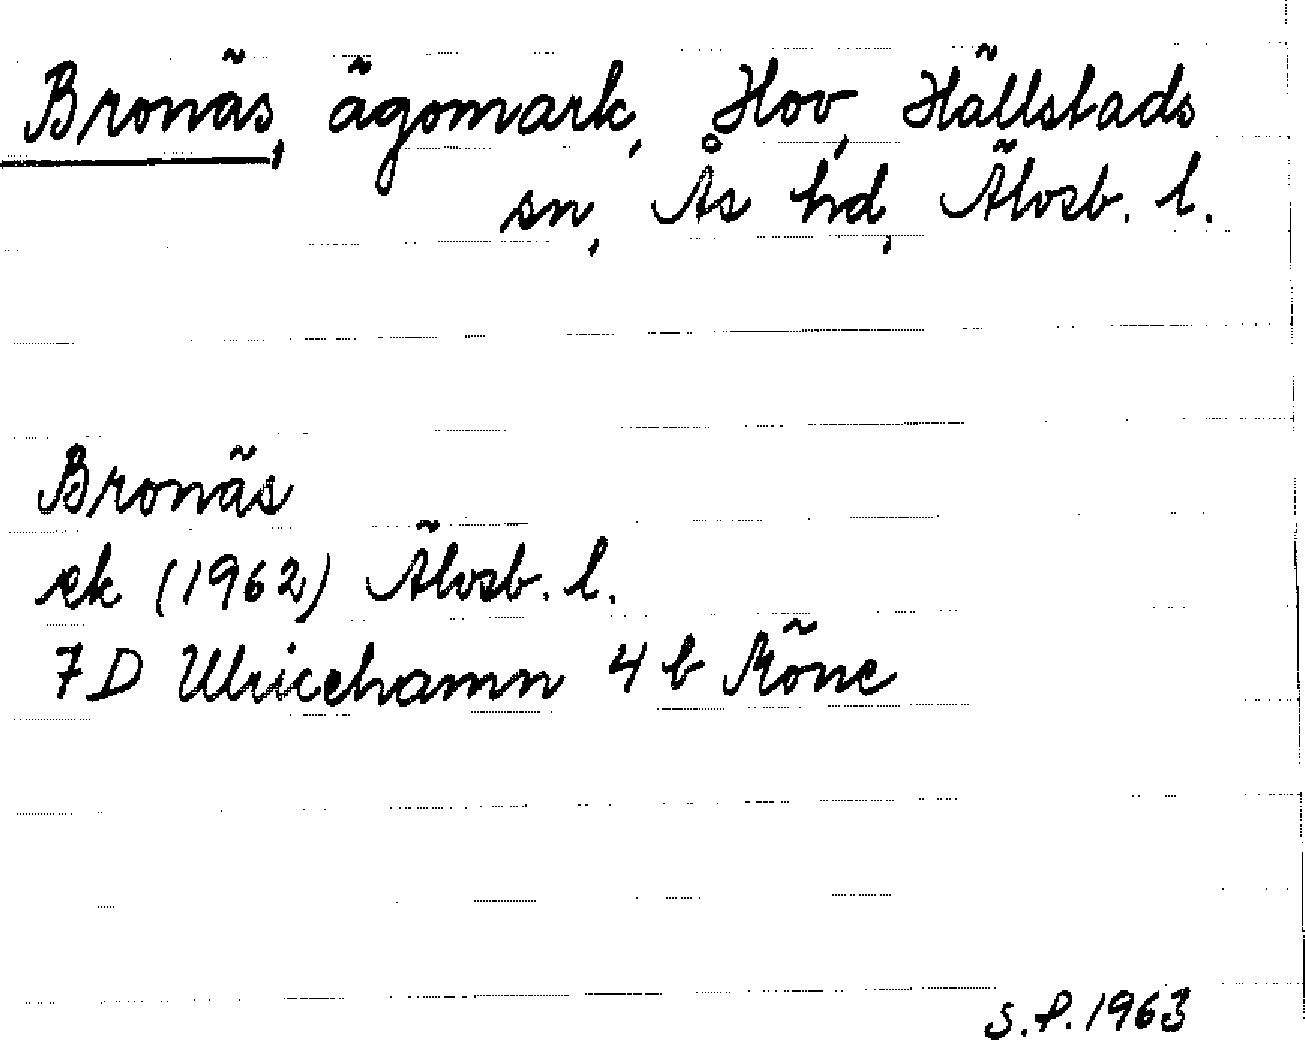 Bronäs, ägomark, Hov, Hällstads
sn, Ås hd, Älvsb. l.
Bronäs
ek (1962) Älvsb. l.
7D Ulricehamn 4 b Köne
S.P. 1963